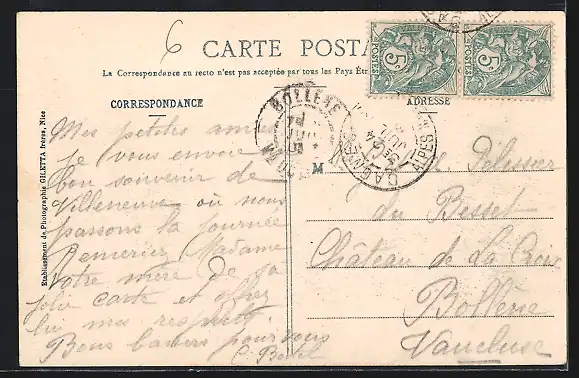 6
CARTE POSTA
La Correspondance au recto n'est pas acceptée par tous les Pays Etr
CORRESPONDANCE
ADRESSE
POSTES
5
POSTES
5
BOLLENE
CAGNES
ALPES
M
Etablissement de Photographie GILETTA frères, Nice
Mes petites amies
Je vous envoie
bon souvenir de
Villeneuve où nous
passons la journée
Remerciez Madame
votre mère de sa
jolie carte et offrez
lui mes respects.
Bons baisers pour vous
Délissier
du Besset
Château de La Croix
Bollène
Vaucluse